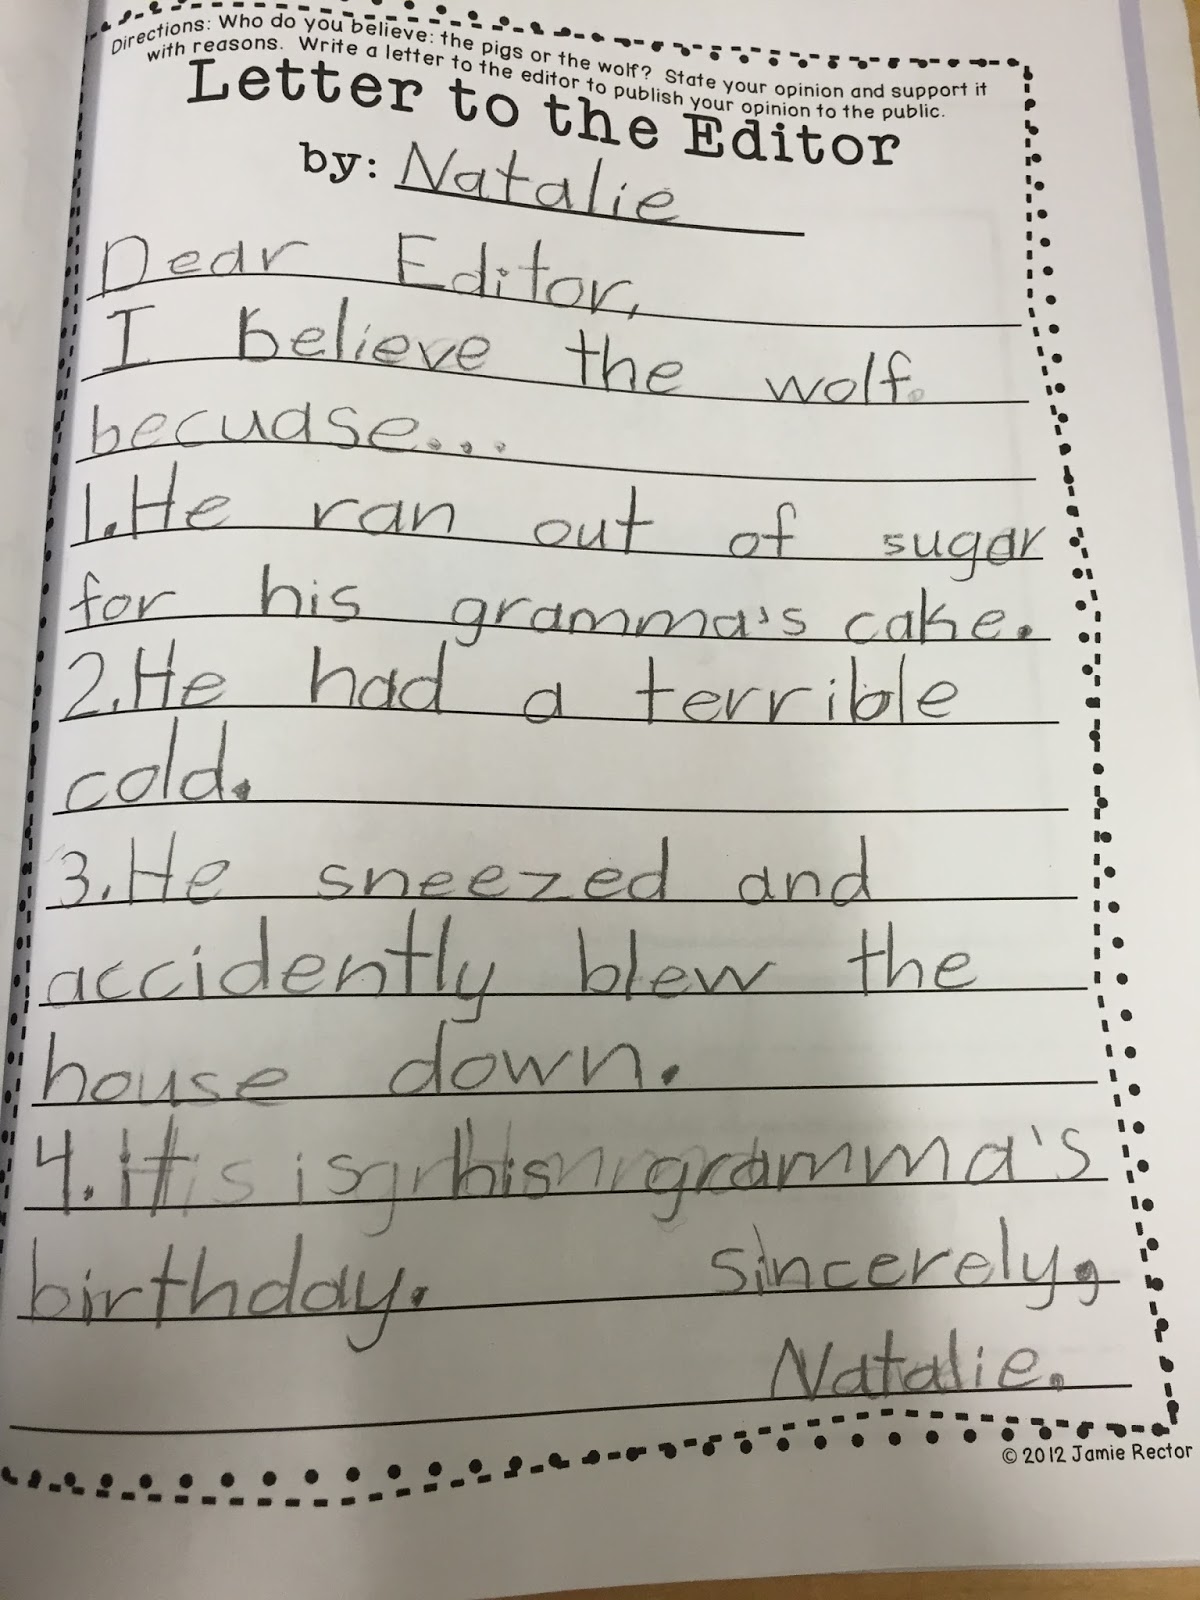 Directions: Who do you believe: the pigs or the wolf? State your opinion and support it
with reasons. Write a letter to the editor to publish your opinion to the public.
Letter to the Editor
by: Natalie
Dear Editor,
I believe the wolf.
becuase...
1.He ran out of sugar
for his gramma's cake.
2.He had a terrible
cold.
3.He sneezed and
accidently blew the
house down.
4.it is his gramma's
birthday. sincerely,
Natalie.
© 2012 Jamie Rector